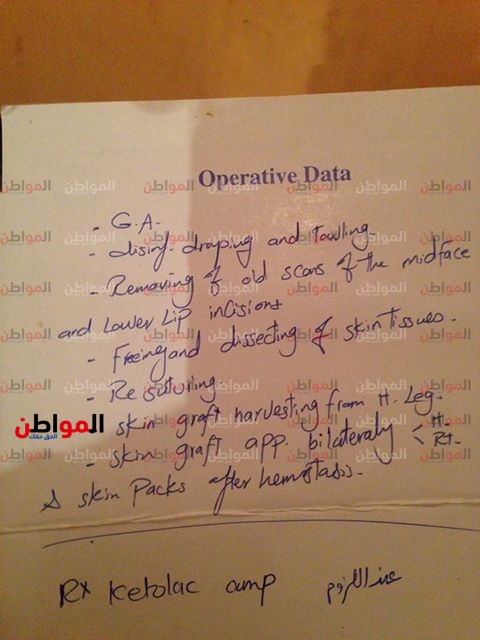 Operative Data
- G.A.
- disinf. draping and towling.
- Removing of old scars of the midface
and Lower Lip incisions
- Freeing and dissecting of skin tissues.
- Resuturing.
- skin graft harvesting from lt. Leg.
- skin graft app. bilateraly < lt. Rt.
& skin Packs after hemostasis.
Rx Ketolac amp عند اللزوم
المواطن